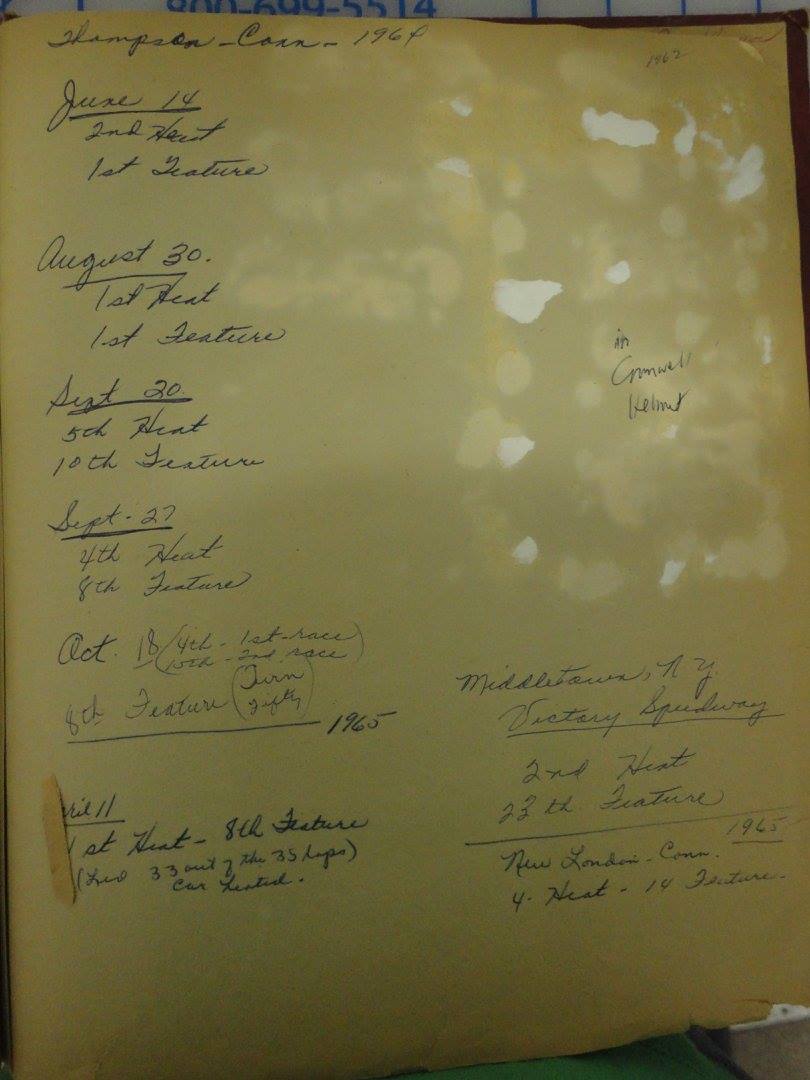 800-699-5514
Thompson - Conn - 1964
1962
June 14
2nd Heat
1st Feature
August 30.
1st Heat
1st Feature
Sept 20.
5th Heat
10th Feature
Sept - 27
4th Heat
8th Feature
Oct. 18 (4th - 1st race)
10th - 2nd race
8th Feature (Twin
Fifty)
1965
ril 11
1st Heat - 8th Feature
(Led 33 out of the 35 laps)
Car heated.
in
Cromwell
Helmet
Middletown, N Y.
Victory Speedway
2nd Heat
23th Feature
1965
New London - Conn.
4 - Heat - 14 Feature.